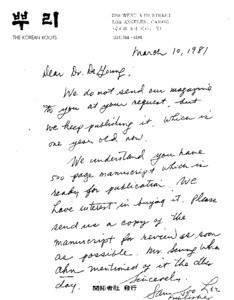 뿌리
THE KOREAN ROOTS
LOS ANGELES, CALIF.
March 10, 1981
Dear Dr. DeYoung:
We do not send our magazine
to you at your request, but
we keep publishing it, which is
one year old now.
We understand you have
500 page manuscript which is
ready for publication. We
have interest in buying it. Please
send us a copy of the
manuscript for review as soon
as possible. Mr. Seung wha
ahn mentioned of it the other
day.
Sincerely,
開拓者社 發行
Lee
Publisher